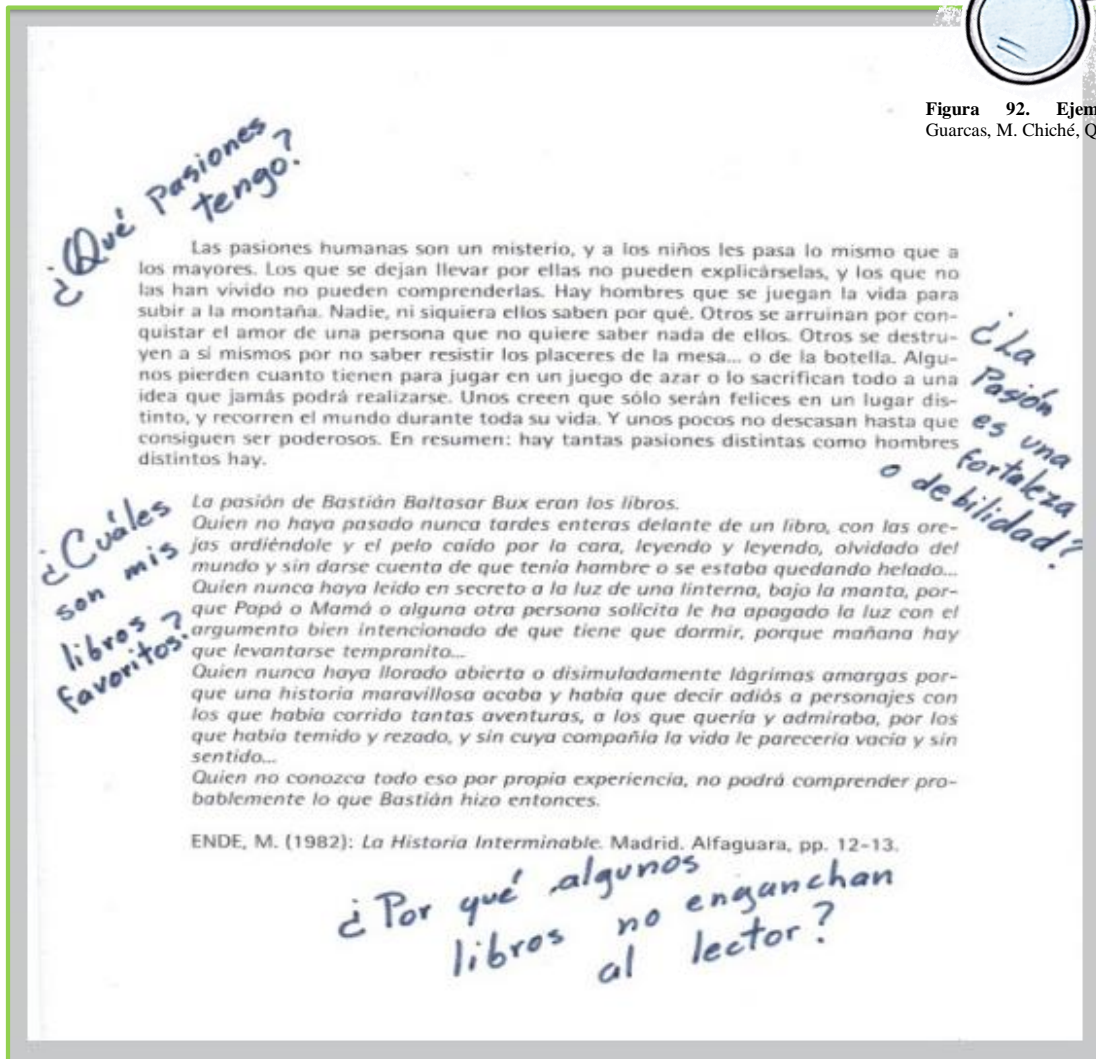 Figura 92. Ejem
Guarcas, M. Chiché, Q
¿Qué Pasiones
tengo?
Las pasiones humanas son un misterio, y a los niños les pasa lo mismo que a
los mayores. Los que se dejan llevar por ellas no pueden explicárselas, y los que no
las han vivido no pueden comprenderlas. Hay hombres que se juegan la vida para
subir a la montaña. Nadie, ni siquiera ellos saben por qué. Otros se arruinan por con-
quistar el amor de una persona que no quiere saber nada de ellos. Otros se destru-
yen a sí mismos por no saber resistir los placeres de la mesa... o de la botella. Algu-
nos pierden cuanto tienen para jugar en un juego de azar o lo sacrifican todo a una
idea que jamás podrá realizarse. Unos creen que sólo serán felices en un lugar dis-
tinto, y recorren el mundo durante toda su vida. Y unos pocos no descasan hasta que
consiguen ser poderosos. En resumen: hay tantas pasiones distintas como hombres
distintos hay.
¿La
Pasión
es una
fortaleza
o debilidad?
La pasión de Bastián Baltasar Bux eran los libros.
Quien no haya pasado nunca tardes enteras delante de un libro, con las ore-
jas ardiéndole y el pelo caído por la cara, leyendo y leyendo, olvidado del
mundo y sin darse cuenta de que tenía hambre o se estaba quedando helado...
Quien nunca haya leído en secreto a la luz de una linterna, bajo la manta, por-
que Papá o Mamá o alguna otra persona solícita le ha apagado la luz con el
argumento bien intencionado de que tiene que dormir, porque mañana hay
que levantarse tempranito...
Quien nunca haya llorado abierta o disimuladamente lágrimas amargas por-
que una historia maravillosa acaba y había que decir adiós a personajes con
los que había corrido tantas aventuras, a los que quería y admiraba, por los
que había temido y rezado, y sin cuya compañía la vida le parecería vacía y sin
sentido...
Quien no conozca todo eso por propia experiencia, no podrá comprender pro-
bablemente lo que Bastián hizo entonces.
¿Cuáles
son mis
libros
favoritos?
ENDE, M. (1982): La Historia Interminable. Madrid. Alfaguara, pp. 12-13.
¿Por qué algunos
libros no enganchan
al lector?